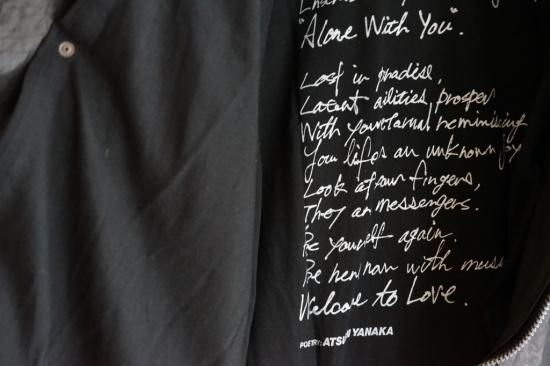 "Alone With You".
Lost in pradise,
Latent ailities, prosper
With your
Your lifes an unknown
Look at your fingers,
They are messengers.
Be yourself again.
Be with
Welcome to Love.
POETRY: ATSU YANAKA